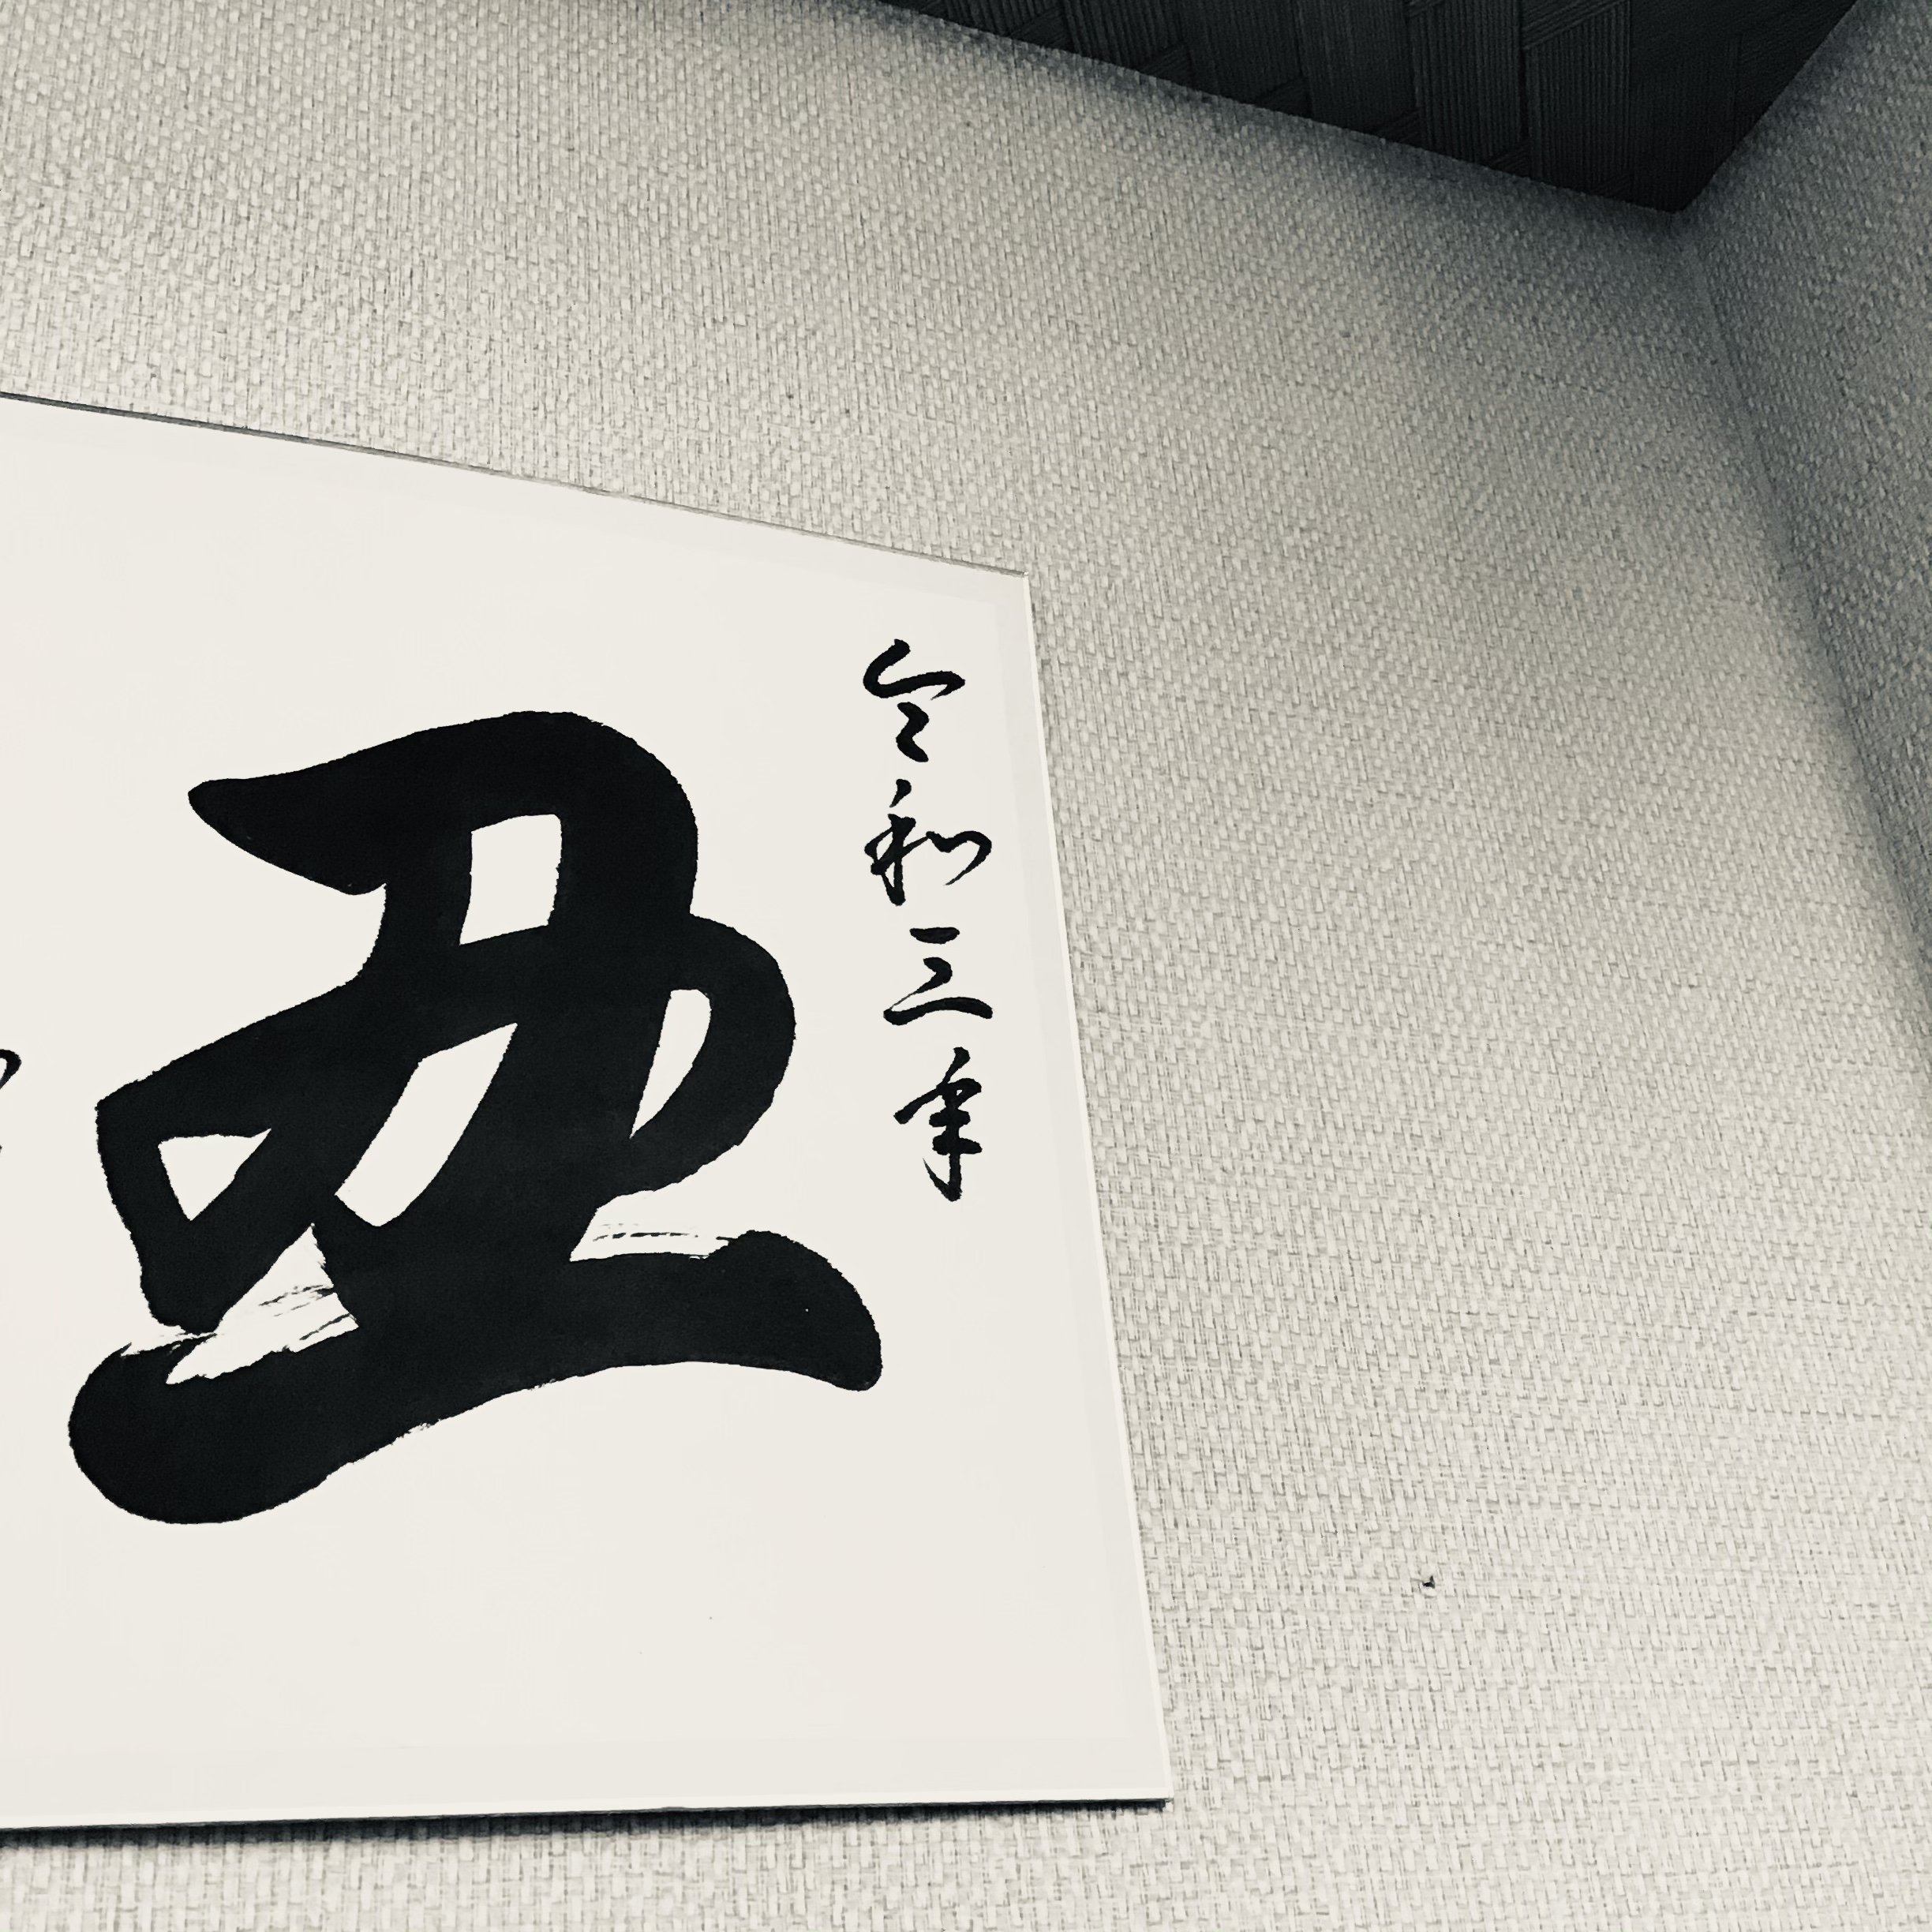 令和三年
丑